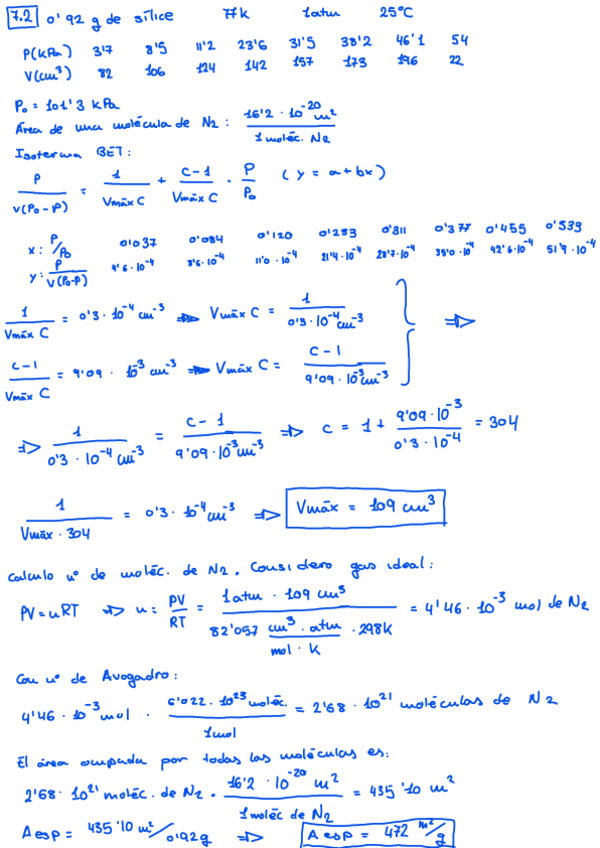 7.2 0'92 g de sílice 77K 1atm 25°C
P(kPa) 3'7 8'5 11'2 23'6 31'5 38'2 46'1 54
V(cm³) 82 106 124 142 157 173 196 22
P₀ = 101'3 kPa
Área de una molécula de N₂ : 16'2 · 10⁻²⁰ m² / 1 moléc. N₂
Isoterma BET:
P / V(P₀-P) = 1 / Vmáx C + C-1 / Vmáx C · P / P₀ (y = a + bx)
x: P/P₀ 0'037 0'084 0'120 0'233 0'311 0'377 0'455 0'533
y: P / V(P₀-P) 4'6·10⁻⁴ 8'6·10⁻⁴ 11'0·10⁻⁴ 21'4·10⁻⁴ 28'7·10⁻⁴ 35'0·10⁻⁴ 42'6·10⁻⁴ 51'9·10⁻⁴
1 / Vmáx C = 0'3 · 10⁻⁴ cm⁻³ ⇒ Vmáx C = 1 / 0'3·10⁻⁴ cm⁻³
C-1 / Vmáx C = 9'09 · 10⁻³ cm⁻³ ⇒ Vmáx C = C-1 / 9'09·10⁻³ cm⁻³ ⇒
⇒ 1 / 0'3 · 10⁻⁴ cm⁻³ = C-1 / 9'09·10⁻³ cm⁻³ ⇒ C = 1 + 9'09·10⁻³ / 0'3·10⁻⁴ = 304
1 / Vmáx · 304 = 0'3 · 10⁻⁴ cm⁻³ ⇒ Vmáx = 109 cm³
Calculo nº de moléc. de N₂. Considero gas ideal:
PV = nRT ⇒ n = PV / RT = 1atm · 109 cm³ / 82'057 cm³ · atm / mol · K · 298K = 4'46 · 10⁻³ mol de N₂
Con nº de Avogadro:
4'46 · 10⁻³ mol · 6'022 · 10²³ moléc. / 1mol = 2'68 · 10²¹ moléculas de N₂
El área ocupada por todas las moléculas es:
2'68 · 10²¹ moléc. de N₂ · 16'2 · 10⁻²⁰ m² / 1 moléc de N₂ = 435'10 m²
A esp = 435'10 m² / 0'92g ⇒ A esp = 472 m²/g